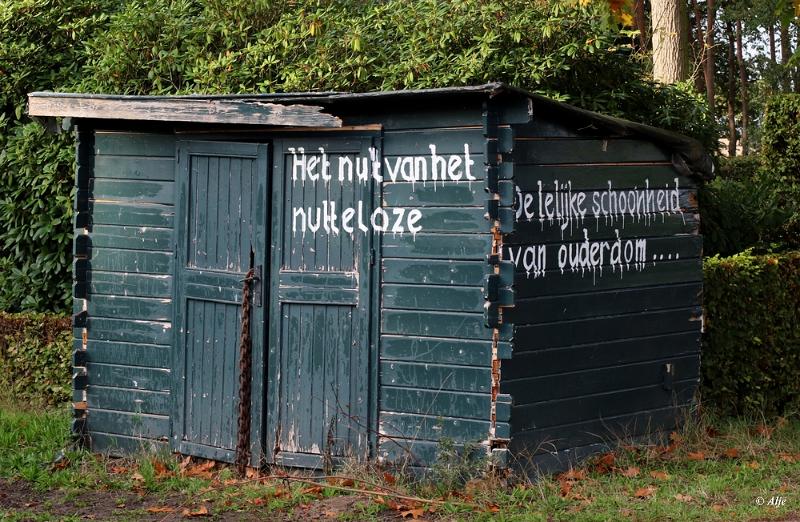 Het nut van het
nutteloze
De lelijke schoonheid
van ouderdom ....
© Alfe